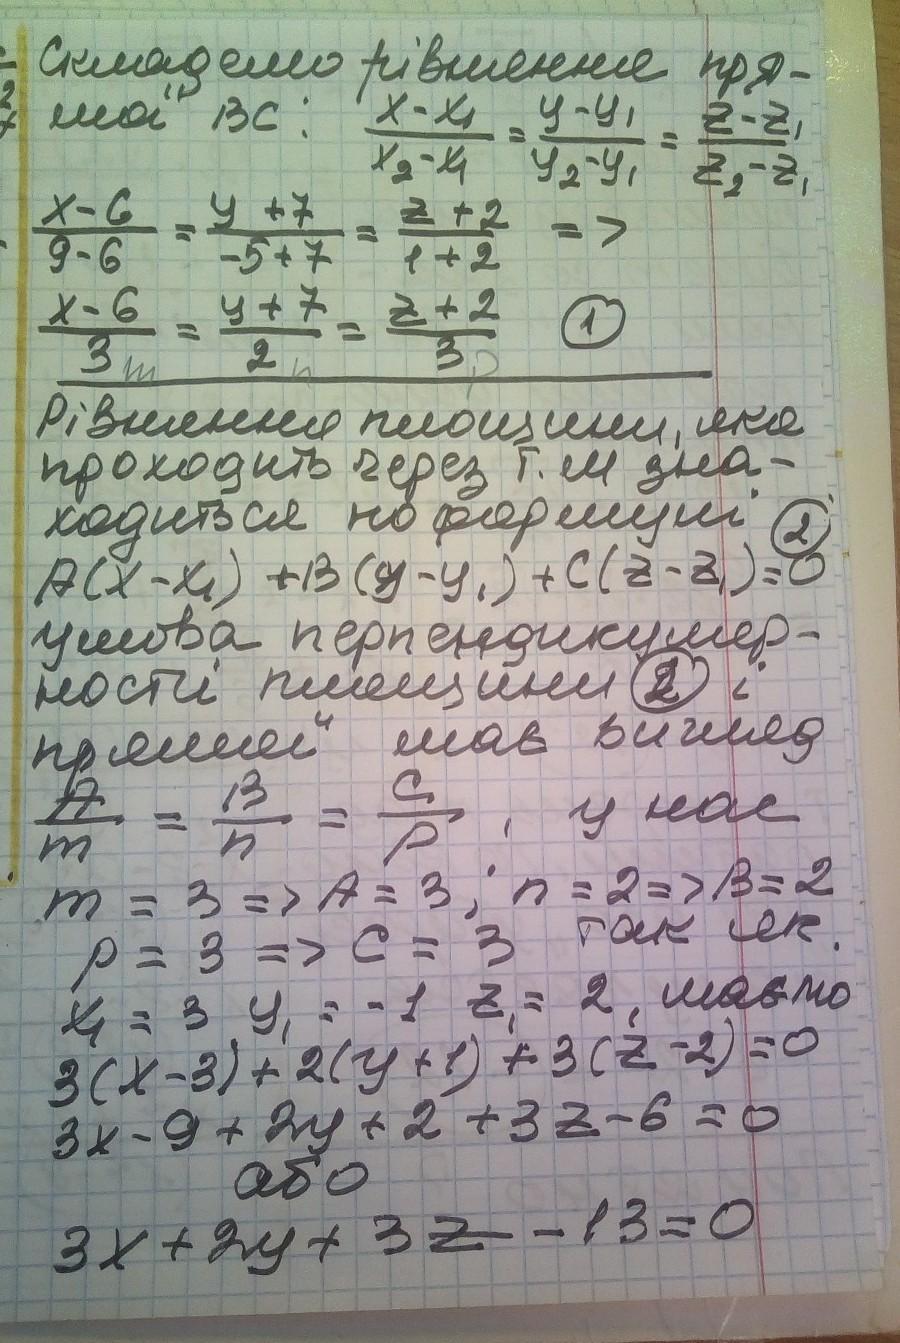 Складемо рівняння пря-
мої ВС: \frac{x-x_1}{x_2-x_1} = \frac{y-y_1}{y_2-y_1} = \frac{z-z_1}{z_2-z_1}
\frac{x-6}{9-6} = \frac{y+7}{-5+7} = \frac{z+2}{1+2} =>
\frac{x-6}{3} = \frac{y+7}{2} = \frac{z+2}{3} ①
m n p
Рівняння площини, яка
проходить через т. М зна-
ходиться по формулі
A(x-x_1)+B(y-y_1)+C(z-z_1)=0 ②
умова перпендикуляр-
ності площини ② і
прямої має вигляд
\frac{A}{m} = \frac{B}{n} = \frac{C}{p}, у нас
m = 3 => A = 3; n = 2 => B = 2
p = 3 => C = 3 так як
x_1 = 3 y_1 = -1 z_1 = 2, маємо
3(x-3)+2(y+1)+3(z-2)=0
3x-9+2y+2+3z-6=0
або
3x+2y+3z-13=0